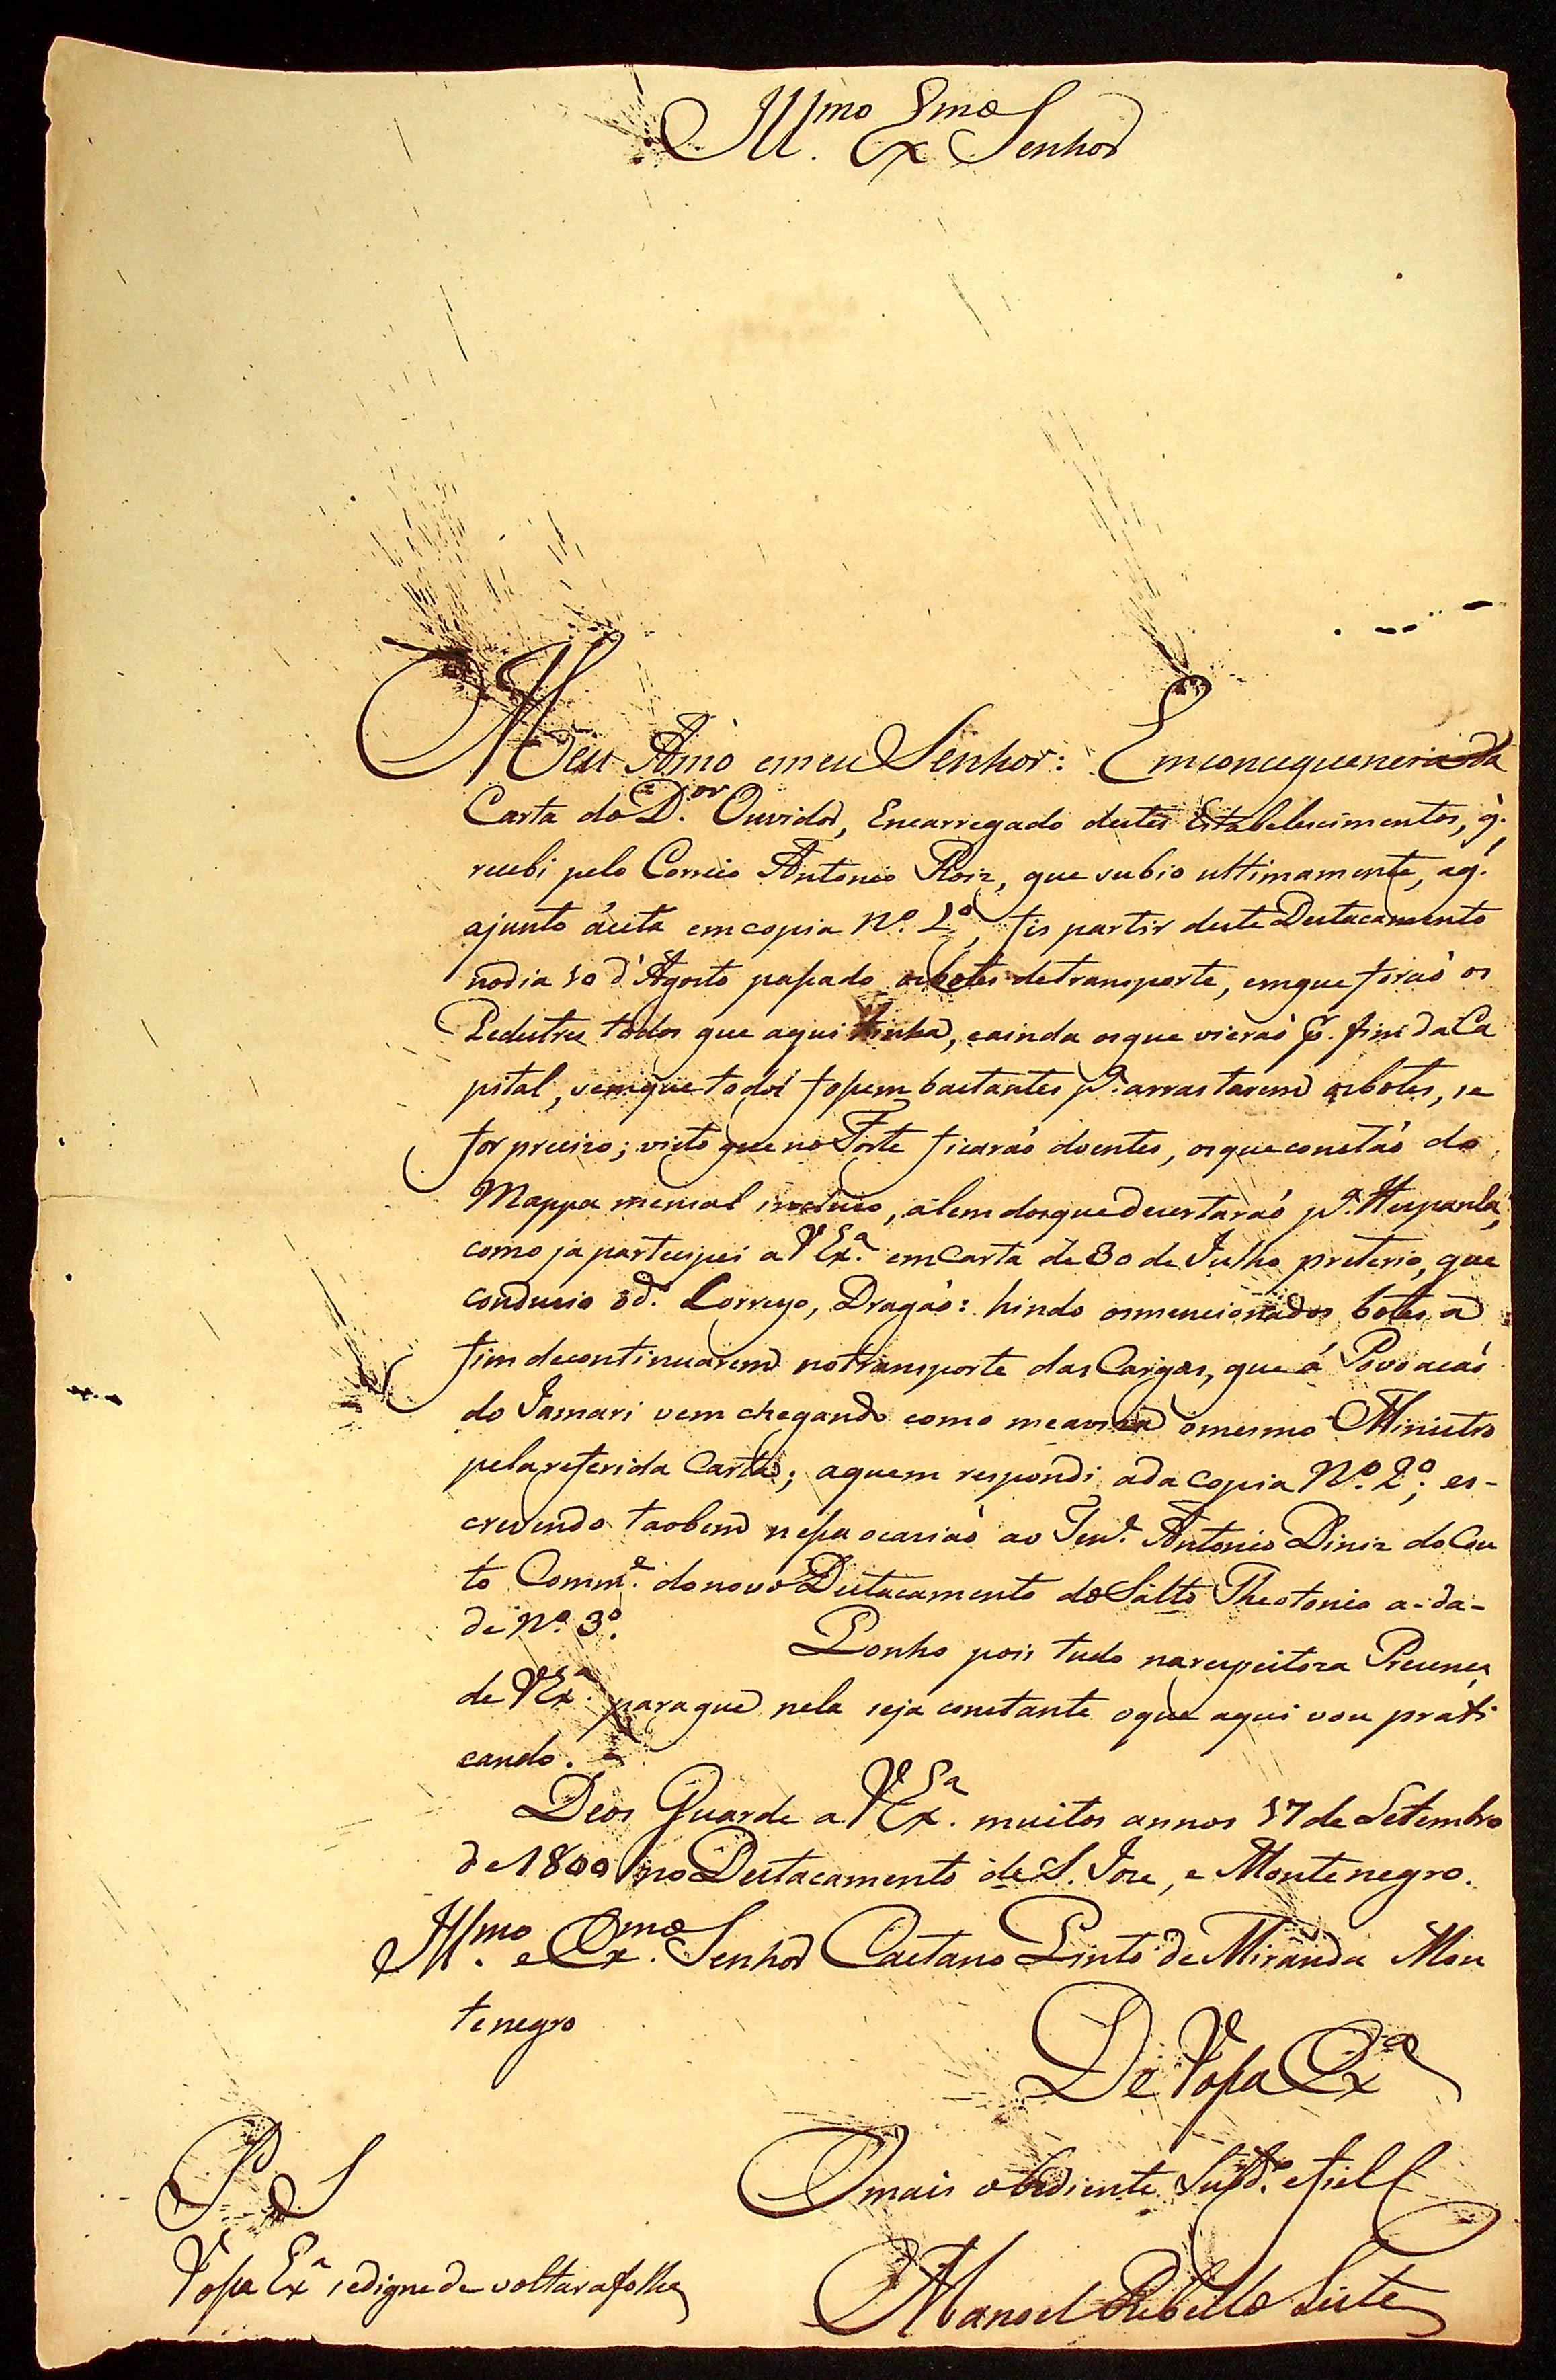 Ill.mo Ex.mo Senhor
Meu Amo e meu Senhor: Em concequencia da
Carta do D.or Ouvidor, Encarregado destes Estabelescimentos, q.
recebi pelo Correio Antonio Roiz, que subio ultimamente, a q.
ajunto áesta em copia N.o 1.o, fis partir deste Destacamento
no dia 10 d'Agosto passado os botes de transporte, em que foraó os
Pedestres todos que aqui tinha, e ainda os que vieraó p. fim da Ca
pital, sem que todos fossem bastantes p.a arrastarem os botes, se
for preciso; visto que no Forte ficaraó doentes, os que constaó do
Mappa mensal incluso, alem dos que desertaraó p.a Hespanha,
como ja partecipei a V Ex.a em Carta de 30 de Julho preterio, que
conducio o d.o Correyo, Dragaó: hindo os mencionados botes a
fim de continuarem no transporte das Cargas, que á Povoacaó
do Jamari vem chegando como me aviza o mesmo Ministro
pela referida Carta; a quem respondi a da copia N.o 2.o; es-
crevendo taobem nessa ocasiaó ao Ten.e Antonio Diniz do Cou
to Comm.e do novo Destacamento do Salto Theotonio a-da-
de N.o 3.o
Ponho pois tudo na respeitoza Presença
de V Ex.a para que nela seja constante o que aqui vou prati
cando.
Deos Guarde a V Ex.a muitos annos 17 de Setembro
de 1800 no Destacamento de S. Joze, e Montenegro.
Ill.mo e Ex.mo Senhor Caetano Pinto de Miranda Mon
tenegro
De Vossa Ex.a
O mais obediente Subd.o e fiel C
Manoel Rebello Leite
P S
Vossa Ex.a se digne de voltar a folha